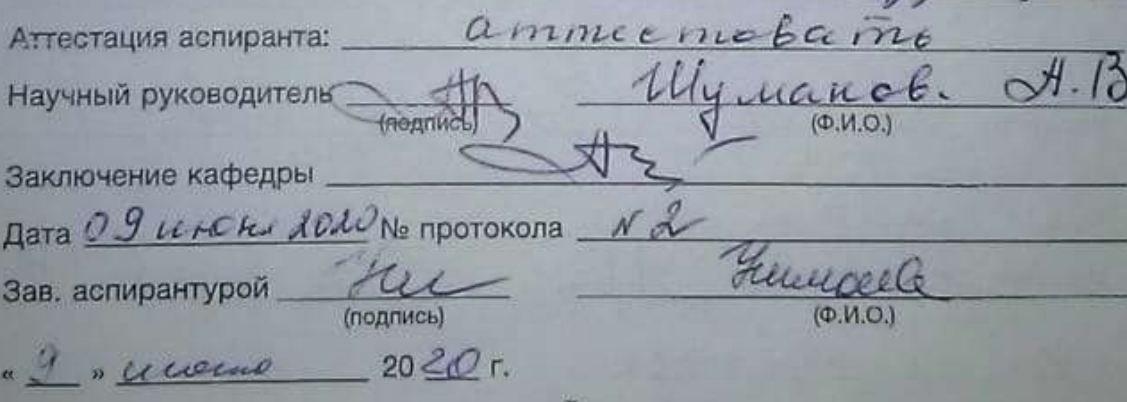 Аттестация аспиранта: аттестовать
Научный руководитель Шуманов. А.В
(подпись) (Ф.И.О.)
Заключение кафедры
Дата 09 июня 2020 № протокола N 2
Зав. аспирантурой
(подпись) (Ф.И.О.)
« 9 » июня 2020 г.